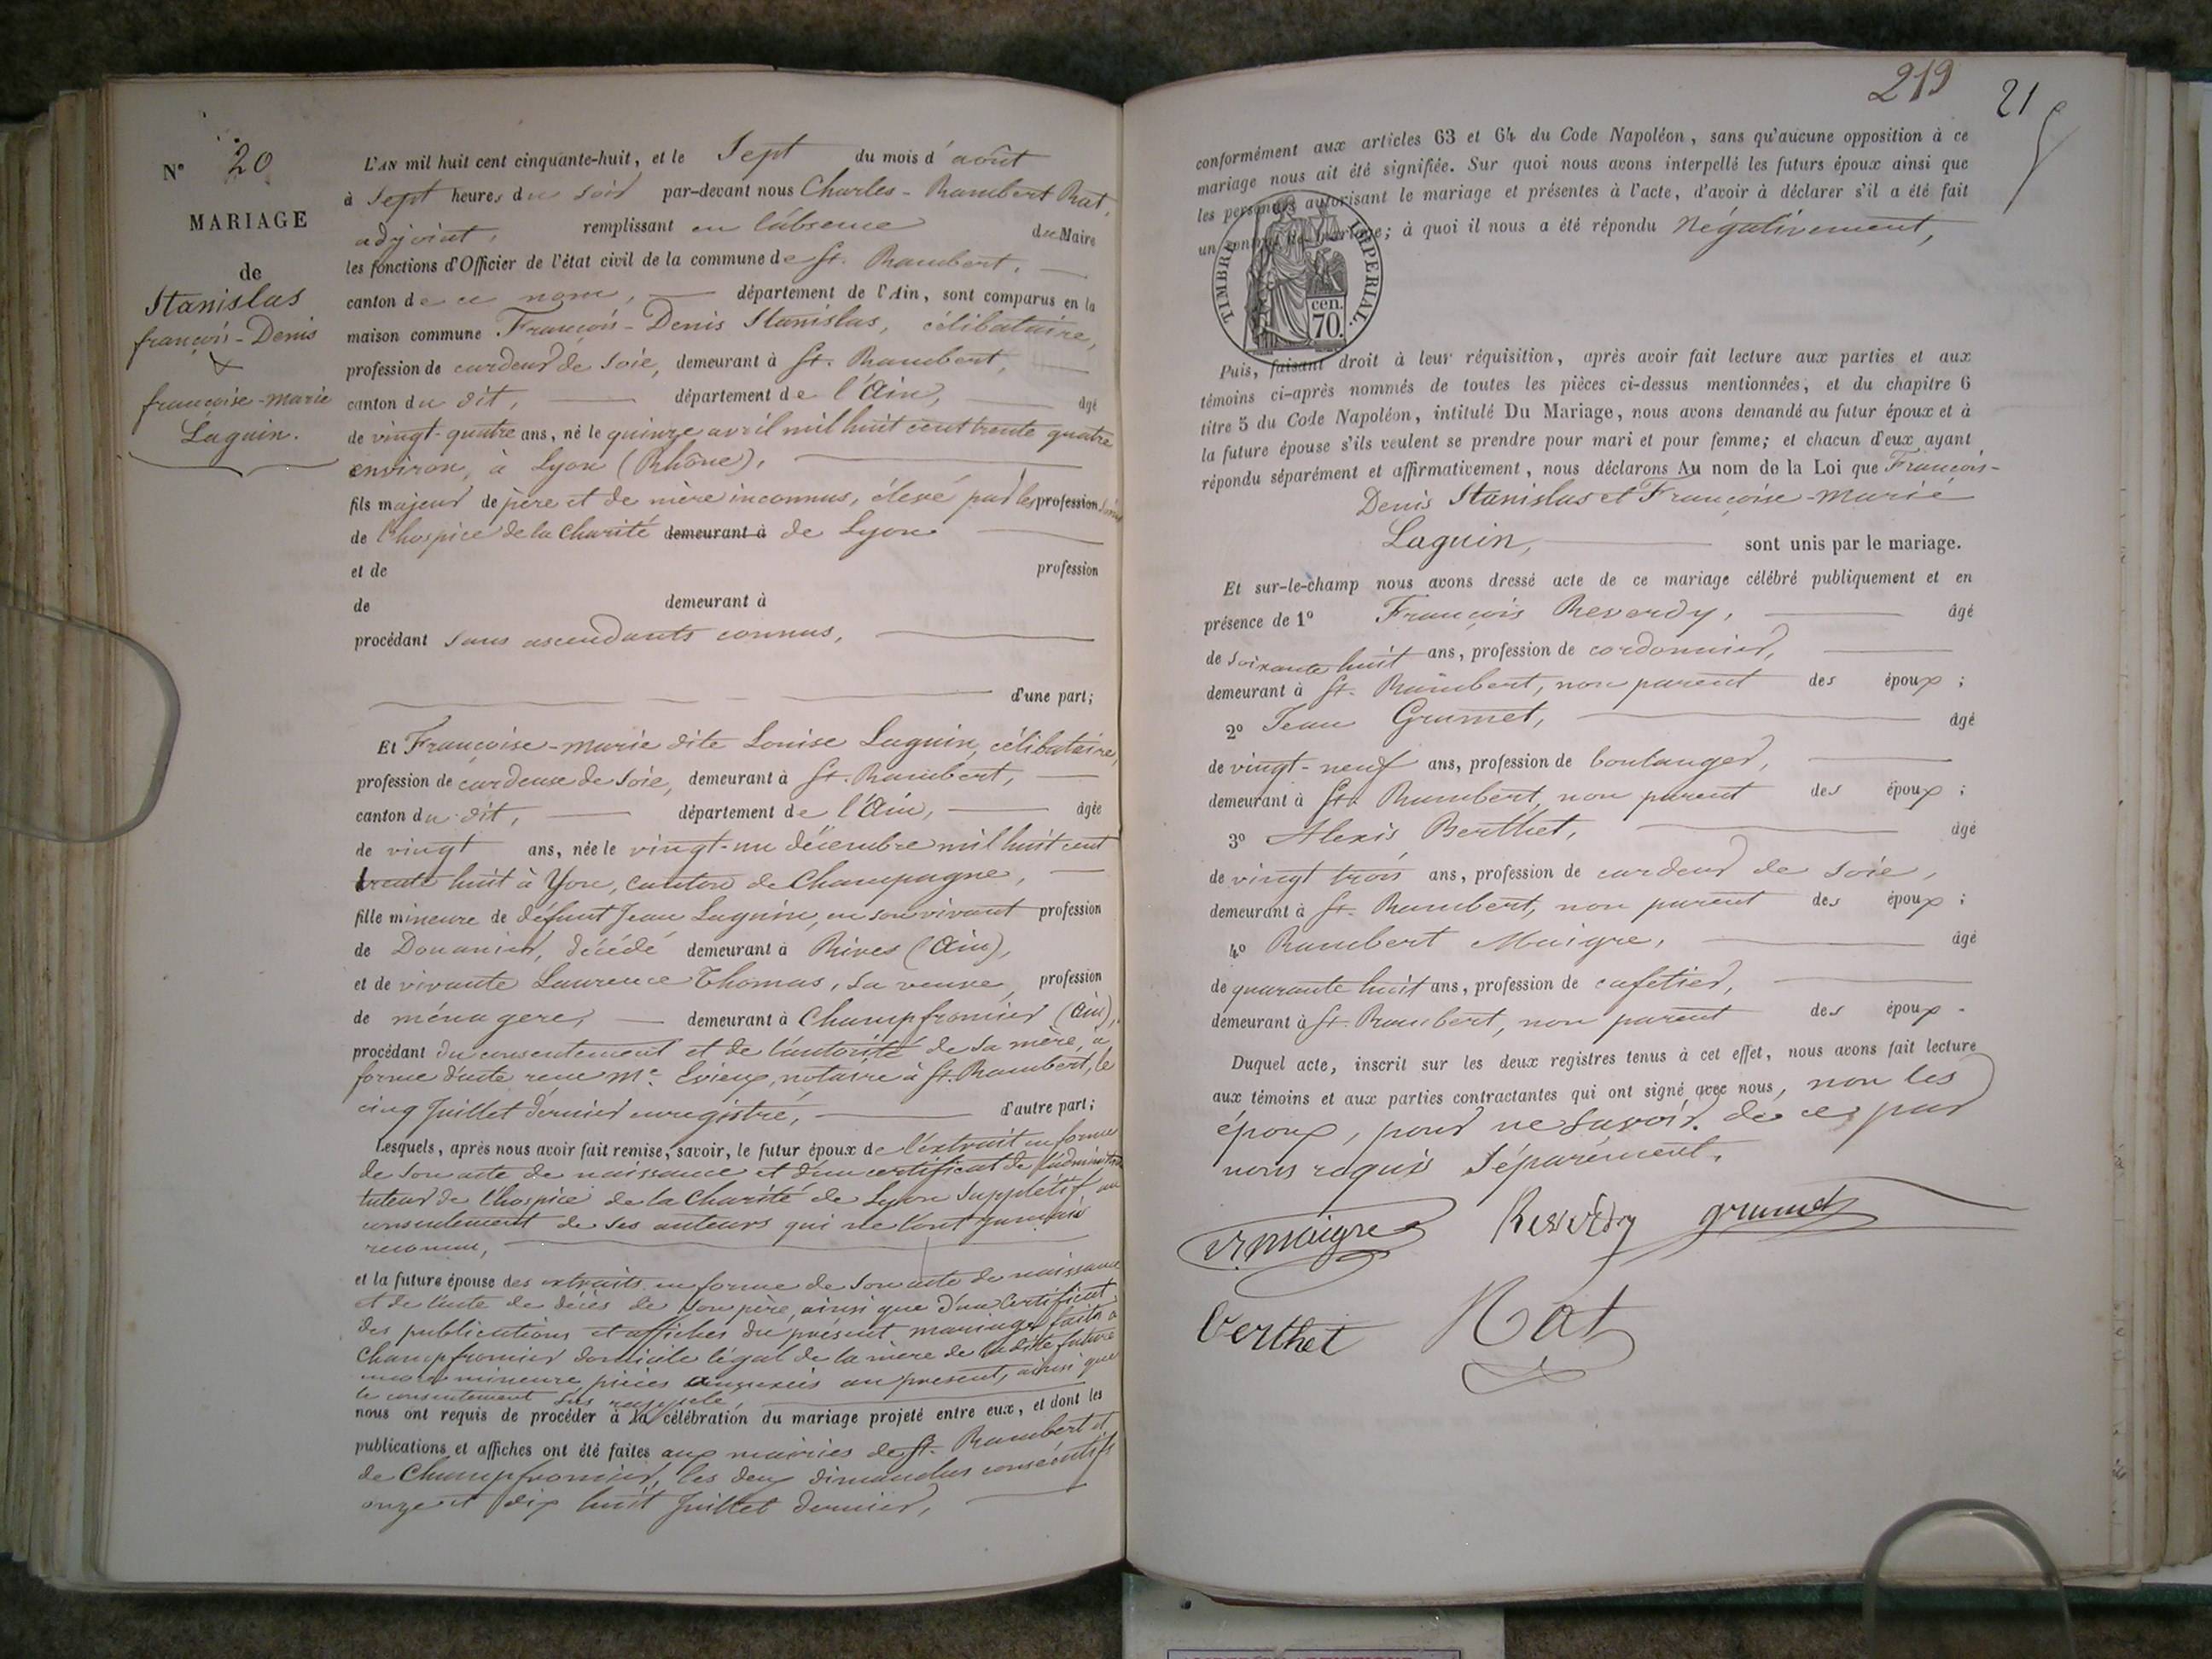 N° 20
MARIAGE
de
Stanislas
françois-Denis
x
françoise-marie
Laguin.
L'AN mil huit cent cinquante-huit, et le Sept du mois d'août
à Sept heures du soir par-devant nous Charles-Rambert Rat,
adjoint, remplissant en l'absence du Maire
les fonctions d'Officier de l'état civil de la commune de St. Rambert,
canton de ce nom, département de l'Ain, sont comparus en la
maison commune François-Denis Stanislas, célibataire,
profession de cardeur de soie, demeurant à St. Rambert,
canton du dit, département de l'Ain, âgé
de vingt-quatre ans, né le quinze avril mil huit cent trente quatre
environ, à Lyon (Rhône),
fils majeur de père et de mère inconnus, élevé par les profession
de l'hospice de la Charité demeurant à de Lyon
et de profession
de demeurant à
procédant sans ascendants connus,
d'une part;
Et Françoise-marie dite Louise Laguin, célibataire,
profession de cardeuse de soie, demeurant à St. Rambert,
canton du dit, département de l'Ain, âgée
de vingt ans, née le vingt-un décembre mil huit cent
trente huit à Yon, canton de Champagne,
fille mineure de défunt Jean Laguin, en son vivant profession
de Douanier, décédé demeurant à Rives (Ain),
et de vivante Laurence Thomas, sa veuve, profession
de ménagère, demeurant à Champfromier (Ain),
procédant du consentement et de l'autorité de sa mère, à
forme d'acte reçu Me. Evieux, notaire à St. Rambert, le
cinq Juillet dernier enregistré, d'autre part;
Lesquels, après nous avoir fait remise, savoir, le futur époux de l'extrait en forme
de son acte de naissance et d'un certificat de l'administra
tuteur de l'hospice de la Charité de Lyon supplétif au
consentement de ses auteurs qui ne l'ont jamais
reconnu,
et la future épouse des extraits en forme de son acte de naissance
et de l'acte de décès de son père, ainsi que d'un Certificat
des publications et affiches du présent mariage faits à
Champfromier domicile légal de la mère de la dite future
mineure pièces annexées au présent, ainsi que
le consentement sus rappelé,
nous ont requis de procéder à la célébration du mariage projeté entre eux, et dont les
publications et affiches ont été faites aux mairies de St. Rambert et
de Champfromier, les deux dimanches consécutifs
onze et dix huit Juillet dernier,
219
21
conformément aux articles 63 et 64 du Code Napoléon, sans qu'aucune opposition à ce
mariage nous ait été signifiée. Sur quoi nous avons interpellé les futurs époux ainsi que
les personnes autorisant le mariage et présentes à l'acte, d'avoir à déclarer s'il a été fait
un contrat de mariage; à quoi il nous a été répondu Négativement,
TIMBRE IMPERIAL.
cen.
70.
Puis, faisant droit à leur réquisition, après avoir fait lecture aux parties et aux
témoins ci-après nommés de toutes les pièces ci-dessus mentionnées, et du chapitre 6
titre 5 du Code Napoléon, intitulé Du Mariage, nous avons demandé au futur époux et à
la future épouse s'ils veulent se prendre pour mari et pour femme; et chacun d'eux ayant
répondu séparément et affirmativement, nous déclarons Au nom de la Loi que François-
Denis Stanislas et Françoise-Marie
Laguin, sont unis par le mariage.
Et sur-le-champ nous avons dressé acte de ce mariage célébré publiquement et en
présence de 1° François Reverdy, âgé
de soixante huit ans, profession de cordonnier,
demeurant à St. Rambert, non parent des époux;
2° Jean Grumet, âgé
de vingt-neuf ans, profession de boulanger,
demeurant à St. Rambert, non parent des époux;
3° Alexis Berthet, âgé
de vingt trois ans, profession de cardeur de soie,
demeurant à St. Rambert, non parent des époux;
4° Rambert Maigre, âgé
de quarante huit ans, profession de cafetier,
demeurant à St. Rambert, non parent des époux.
Duquel acte, inscrit sur les deux registres tenus à cet effet, nous avons fait lecture
aux témoins et aux parties contractantes qui ont signé avec nous, non les
époux, pour ne savoir, de ce par
nous requis séparément.
r. maigre Reverdy grumet
berthet Rat